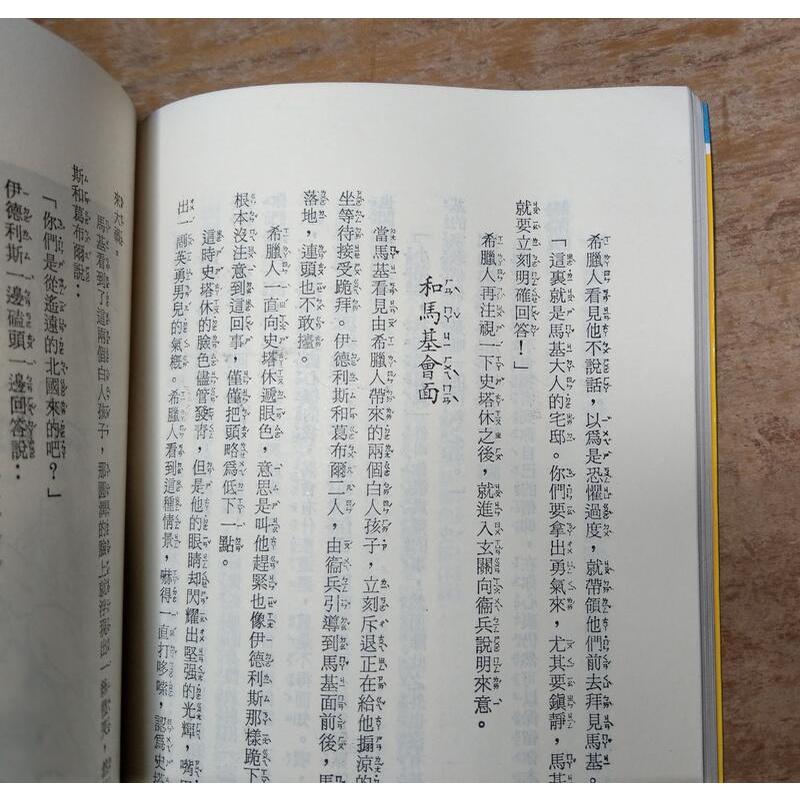 希臘人看見他不說話，以爲是恐懼過度，就帶領他們前去拜見馬基。
「這裏就是馬基大人的宅邸。你們要拿出勇氣來，尤其要鎮靜，馬基
就要立刻明確回答！」
希臘人再注視一下史塔休之後，就進入玄關向衞兵說明來意。
和馬基會面
當馬基看見由希臘人帶來的兩個白人孩子，立刻斥退正在給他搧涼的
坐等待接受跪拜。伊德利斯和葛布爾二人，由衞兵引導到馬基面前後，馬
落地，連頭也不敢擡。
希臘人一直向史塔休遞眼色，意思是叫他趕緊也像伊德利斯那樣跪下
根本沒注意到這回事，僅僅把頭略爲低下一點。
這時史塔休的臉色儘管發青，但是他的眼睛却閃耀出堅强的光輝，嘴
出一副英勇男兒的氣槪。希臘人看到這種情景，嚇得一直打哆嗦，認爲史塔
馬基看到了這兩個白人孩子，
斯和葛布爾說：
「你們是從遙遠的北國來的吧？」
伊德利斯一邊磕頭一邊回答說：